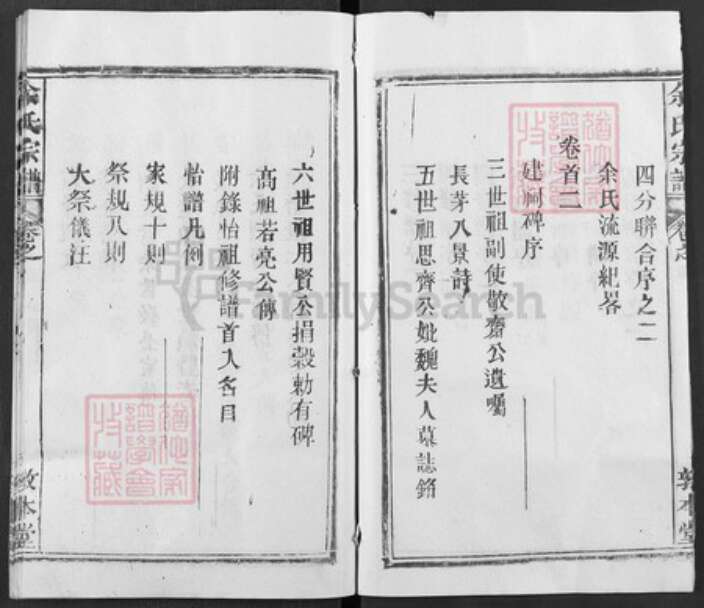 四分聯合序之二
余氏流源紀畧
卷首二
建祠碑序
三世祖副使敬齋公遺囑
長芽八景詩
五世祖思齊公妣魏夫人墓誌銘
敦本堂
余氏宗譜
六世祖用賢公捐穀勅有碑
高祖若亮公傳
附錄怡祖修譜首人名目
怡譜凡例
家規十則
祭規八則
大祭儀注
余氏宗譜
敦本堂
FamilySearch